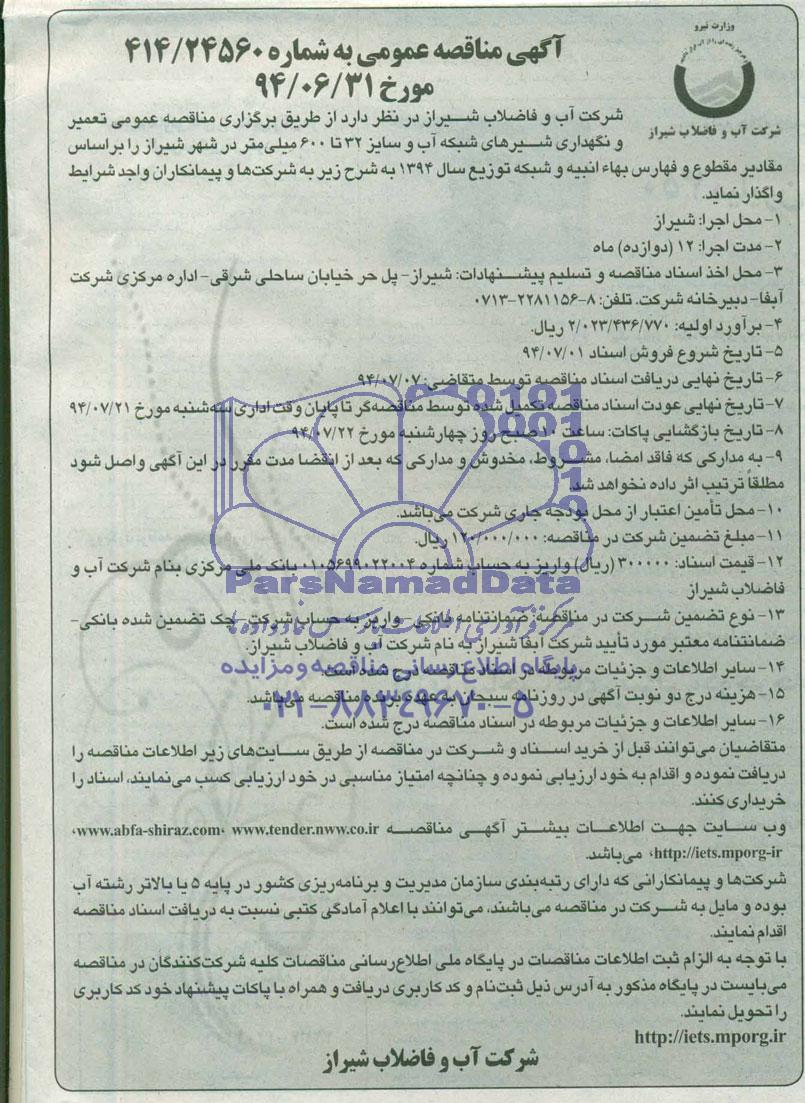 وزارت نیرو
شرکت آب و فاضلاب شیراز
آگهی مناقصه عمومی به شماره ۴۱۴/۲۴۵۶۰
مورخ ۹۴/۰۶/۳۱
شرکت آب و فاضلاب شیراز در نظر دارد از طریق برگزاری مناقصه عمومی تعمیر
و نگهداری شیرهای شبکه آب و سایز ۳۲ تا ۶۰۰ میلی‌متر در شهر شیراز را براساس
مقادیر مقطوع و فهارس بهاء انبیه و شبکه توزیع سال ۱۳۹۴ به شرح زیر به شرکت‌ها و پیمانکاران واجد شرایط
واگذار نماید.
۱- محل اجرا: شیراز
۲- مدت اجرا: ۱۲ (دوازده) ماه
۳- محل اخذ اسناد مناقصه و تسلیم پیشنهادات: شیراز- پل حر خیابان ساحلی شرقی- اداره مرکزی شرکت
آبفا- دبیرخانه شرکت. تلفن: ۸-۲۲۸۱۱۵۶-۰۷۱۳
۴- برآورد اولیه: ۲/۰۲۳/۴۳۶/۷۷۰ ریال.
۵- تاریخ شروع فروش اسناد ۹۴/۰۷/۰۱
۶- تاریخ نهایی دریافت اسناد مناقصه توسط متقاضی: ۹۴/۰۷/۰۷
۷- تاریخ نهایی عودت اسناد مناقصه تکمیل شده توسط مناقصه‌گر تا پایان وقت اداری سه‌شنبه مورخ ۹۴/۰۷/۲۱
۸- تاریخ بازگشایی پاکات: ساعت ۱۰ صبح روز چهارشنبه مورخ ۹۴/۰۷/۲۲
۹- به مدارکی که فاقد امضا، مشروط، مخدوش و مدارکی که بعد از انقضا مدت مقرر در این آگهی واصل شود
مطلقاً ترتیب اثر داده نخواهد شد.
۱۰- محل تأمین اعتبار از محل بودجه جاری شرکت می‌باشد.
۱۱- مبلغ تضمین شرکت در مناقصه: ۱۲۰/۰۰۰/۰۰۰ ریال.
۱۲- قیمت اسناد: ۳۰۰۰۰۰ (ریال) واریز به حساب شماره ۰۱۰۵۶۹۹۰۲۲۰۰۴ بانک ملی مرکزی بنام شرکت آب و
فاضلاب شیراز
ParsNamadData
۱۳- نوع تضمین شرکت در مناقصه: ضمانتنامه بانکی- واریز به حساب شرکت- چک تضمین شده بانکی-
مرکز فرآوری اطلاعات پارس نماد داده‌ها
ضمانتنامه معتبر مورد تأیید شرکت آبفا شیراز به نام شرکت آب و فاضلاب شیراز.
۱۴- سایر اطلاعات و جزئیات مربوطه در اسناد مناقصه درج شده است.
پایگاه اطلاع رسانی مناقصه و مزایده
۱۵- هزینه درج دو نوبت آگهی در روزنامه سبحان به عهده برنده مناقصه می‌باشد.
۰۲۱-۸۸۳۴۹۶۷۰-۵
۱۶- سایر اطلاعات و جزئیات مربوطه در اسناد مناقصه درج شده است.
متقاضیان می‌توانند قبل از خرید اسناد و شرکت در مناقصه از طریق سایت‌های زیر اطلاعات مناقصه را
دریافت نموده و اقدام به خود ارزیابی نموده و چنانچه امتیاز مناسبی در خود ارزیابی کسب می‌نمایند، اسناد را
خریداری کنند.
وب سایت جهت اطلاعات بیشتر آگهی مناقصه www.abfa-shiraz.com، www.tender.nww.co.ir،
http://iets.mporg-ir، می‌باشد.
شرکت‌ها و پیمانکارانی که دارای رتبه‌بندی سازمان مدیریت و برنامه‌ریزی کشور در پایه ۵ یا بالاتر رشته آب
بوده و مایل به شرکت در مناقصه می‌باشند، می‌توانند با اعلام آمادگی کتبی نسبت به دریافت اسناد مناقصه
اقدام نمایند.
با توجه به الزام ثبت اطلاعات مناقصات در پایگاه ملی اطلاع‌رسانی مناقصات کلیه شرکت‌کنندگان در مناقصه
می‌بایست در پایگاه مذکور به آدرس ذیل ثبت‌نام و کد کاربری دریافت و همراه با پاکات پیشنهاد خود کد کاربری
را تحویل نمایند.
http://iets.mporg.ir
شرکت آب و فاضلاب شیراز